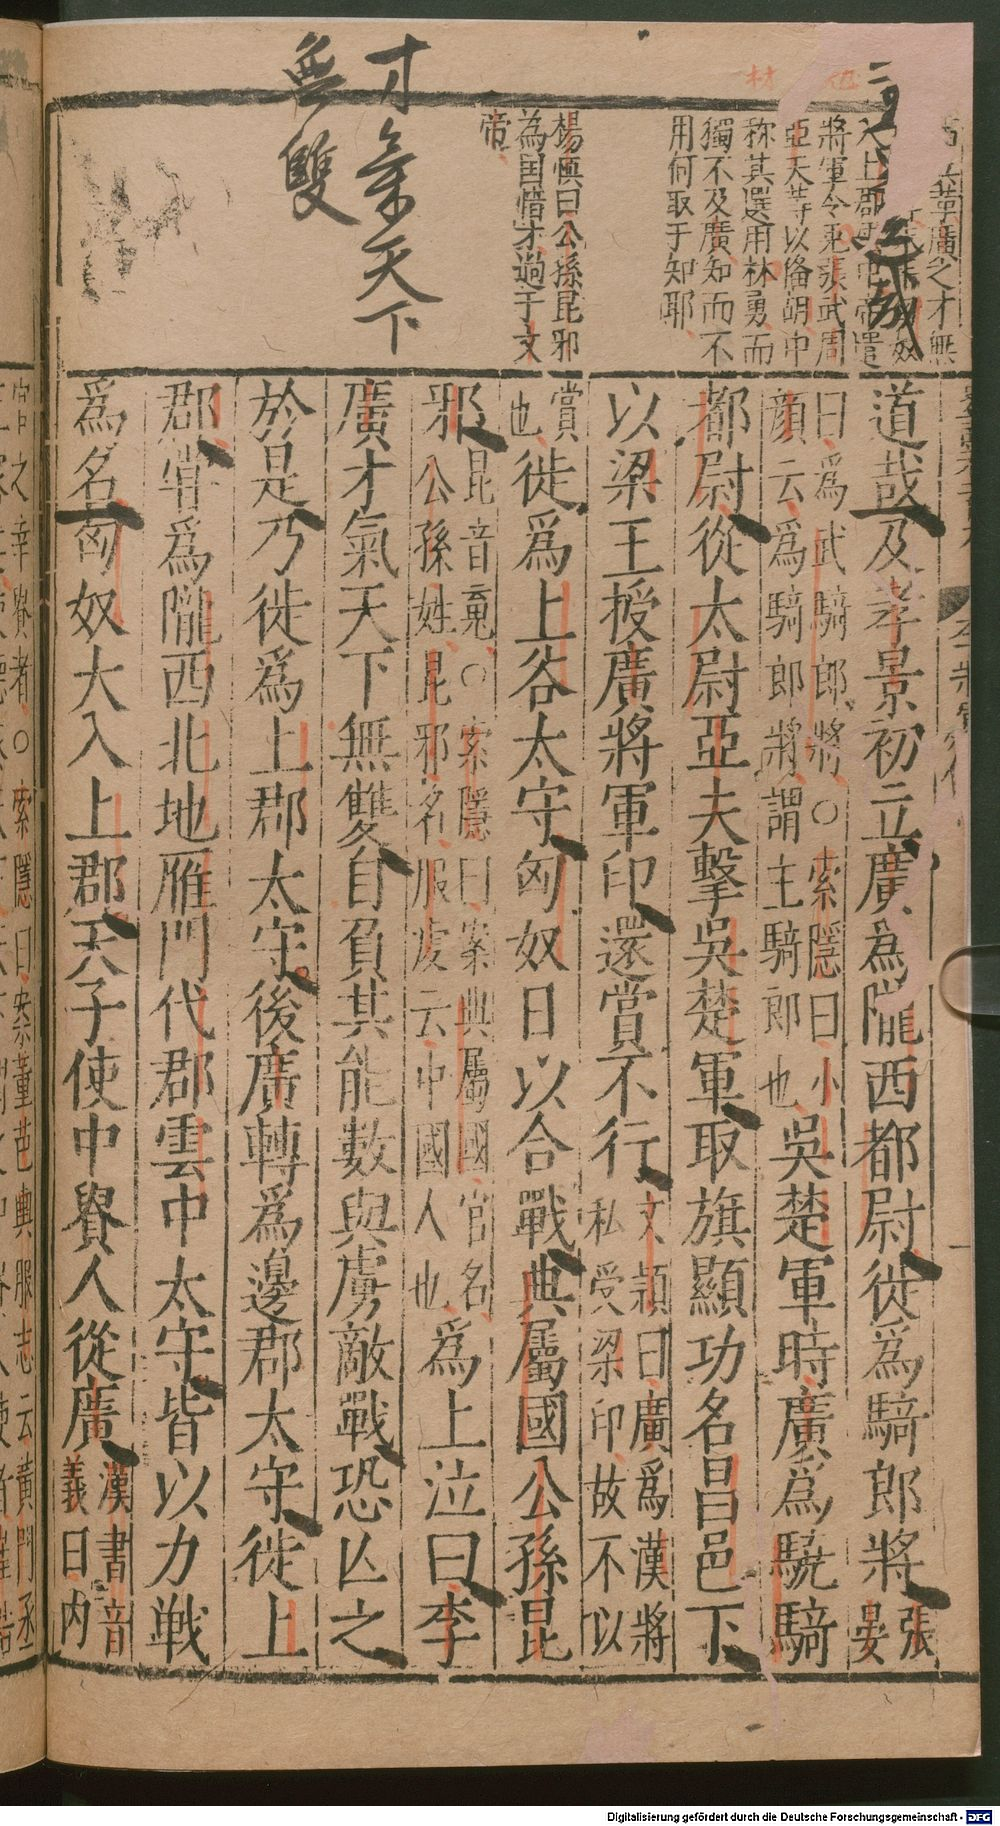 才氣天下
無雙
廣之才無
將軍令免張武周
亞夫等以俻胡中
称其選用林勇而
獨不及廣知而不
用何取于知耶
楊慎曰公孫昆邪
為国惜才過于文
帝
道哉及孝景初立廣爲隴西都尉徙爲騎郎將張晏
曰爲武騎郎將○索隱曰小
顔云爲騎郎將謂主騎郎也吳楚軍時廣爲驍騎
都尉從太尉亞夫擊吳楚軍取旗顯功名昌邑下
以梁王授廣將軍印還賞不行文頴曰廣爲漢將
私受梁印故不以
賞
也徙爲上谷太守匈奴日以合戰典屬國公孫昆
邪昆音䰟○索隱曰案典屬國官名
公孫姓昆邪名服䖍云中國人也爲上泣曰李
廣才氣天下無雙自負其能數與虜敵戰恐亾之
於是乃徙爲上郡太守後廣轉爲邊郡太守徙上
郡甞爲隴西北地雁門代郡雲中太守皆以力戰
爲名匈奴大入上郡天子使中貴人從廣漢書音
義曰内
Digitalisierung gefördert durch die Deutsche Forschungsgemeinschaft - DFG